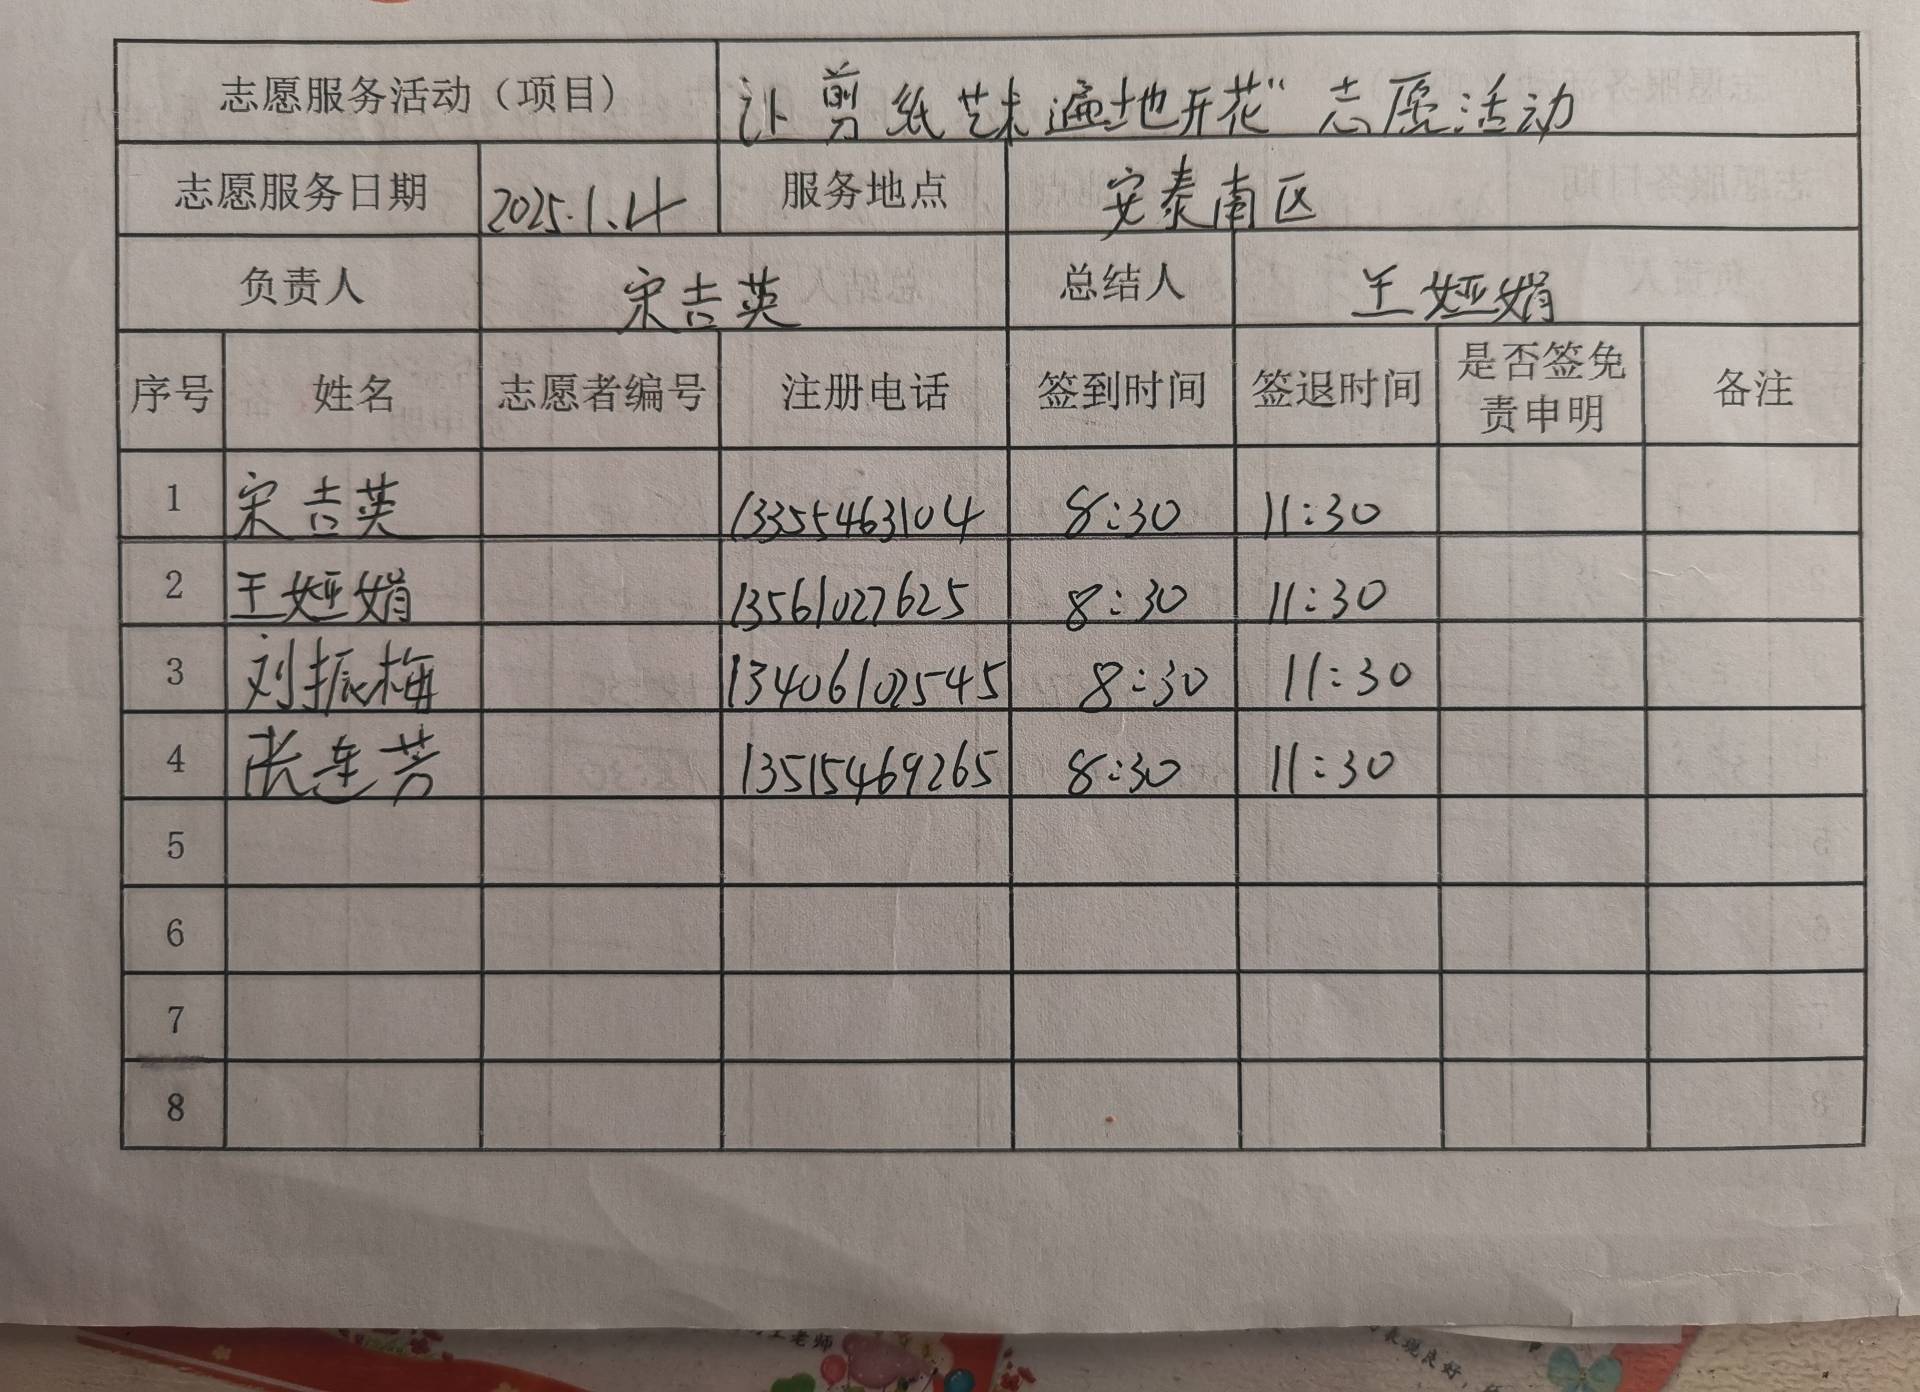 志愿服务活动（项目） 让剪纸艺术遍地开花"志愿活动
志愿服务日期 2025.1.4 服务地点 安泰南区
负责人 宋吉英 总结人 王娅娟
序号 姓名 志愿者编号 注册电话 签到时间 签退时间 是否签免责申明 备注
1 宋吉英 13355463104 8:30 11:30
2 王娅娟 13561027625 8:30 11:30
3 刘振梅 13406102545 8:30 11:30
4 张连芳 13515469265 8:30 11:30
5
6
7
8
老师
表现良好，